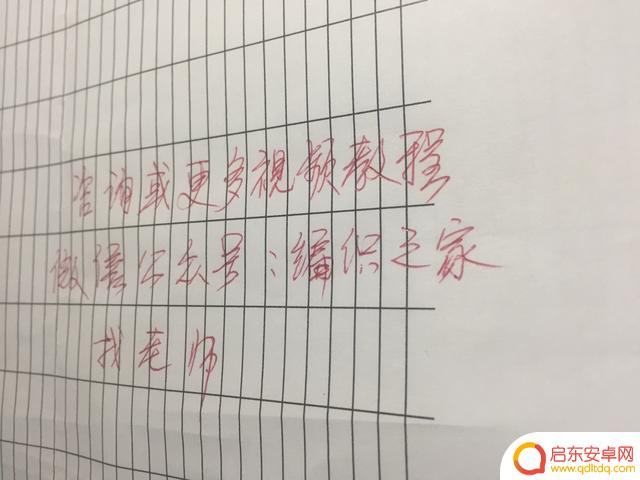 咨询或更多视频教程
微信公众号：编织之家
找老师
启东安卓网
www.qdltdq.com